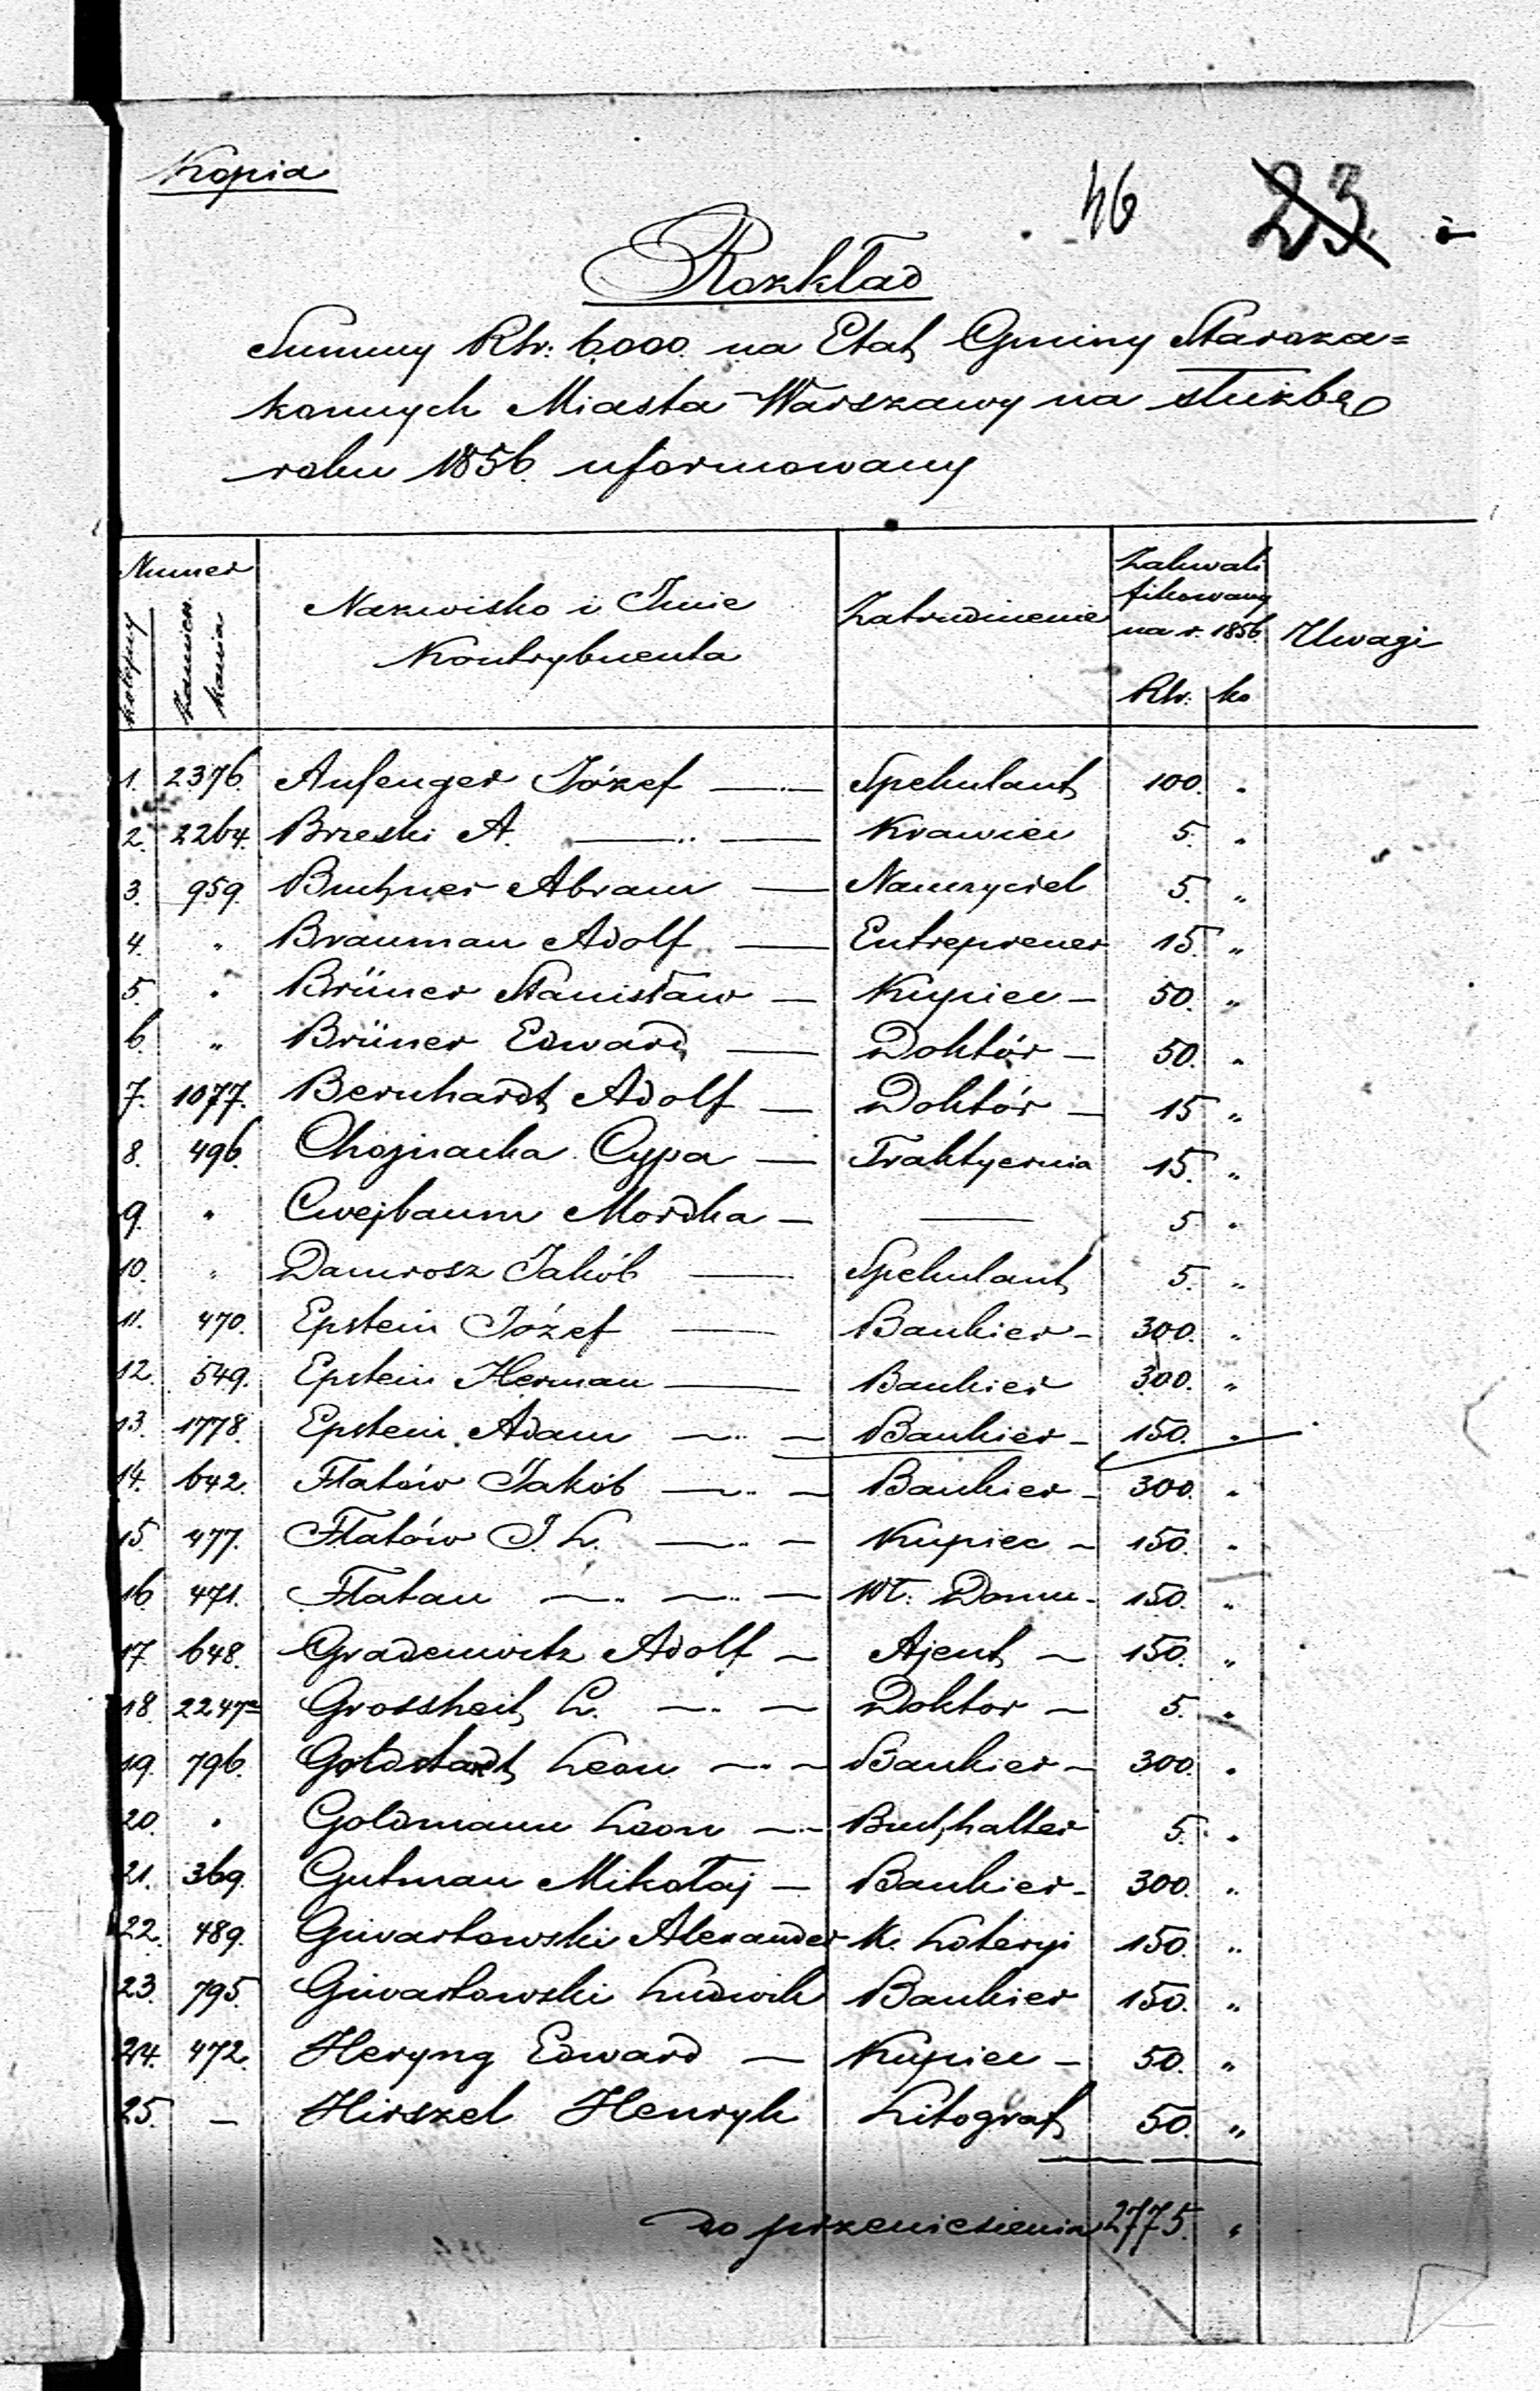 Kopia
46 23.
Rozkład
Summy Rbr: 6,000. na Etat Gminy Staroza=
konnych Miasta Warszawy na służbę
roku 1856. uformowany
Numer
kolejny
Zamiesz.
kania
Nazwisko i Imie
Kontrybuenta
Zatrudnienie
Zakwali
fikowany
na r. 1856.
Rbr: ko
Uwagi
1. 2376. Aufenger Józef Spekulant 100. "
2. 2264. Brzeski A. Krawiec 5. "
3. 959. Buchner Abram Nauczyciel 5. "
4. " Brauman Adolf Entreprener 15. "
5. " Brüner Stanisław Kupiec 50. "
6. " Brüner Edward Doktór 50. "
7. 1077. Bernhardt Adolf Doktór 15 "
8. 496. Chojnacka Cypa Traktyernia 15. "
9. " Cwejbaum Mordka — 5 "
10. " Damrosz Jakób Spekulant 5. "
11. 470. Epstein Józef Bankier 300. "
12. 549. Epstein Herman Bankier 300. "
13. 1778. Epstein Adam Bankier 150. "
14. 642. Flatów Jakób Bankier 300. "
15 477. Flatów J. L. Kupiec 150. "
16 471. Flatau Wł: Domu 150. "
17. 648. Gradenwitz Adolf Ajent 150. "
18. 2247a Grossheit L. Doktor 5. "
19. 796. Goldstadt Leon Bankier 300. "
20. " Goldmann Leon Buchhalter 5. "
21. 369. Gutman Mikołaj Bankier 300. "
22. 489. Giwartowski Alexander K. Loteryi 150. "
23. 795. Giwartowski Ludwik Bankier 150. "
24. 472. Heryng Edward Kupiec 50. "
25. — Hirszel Henryk Litograf 50. "
do przeniesienia 2775. "